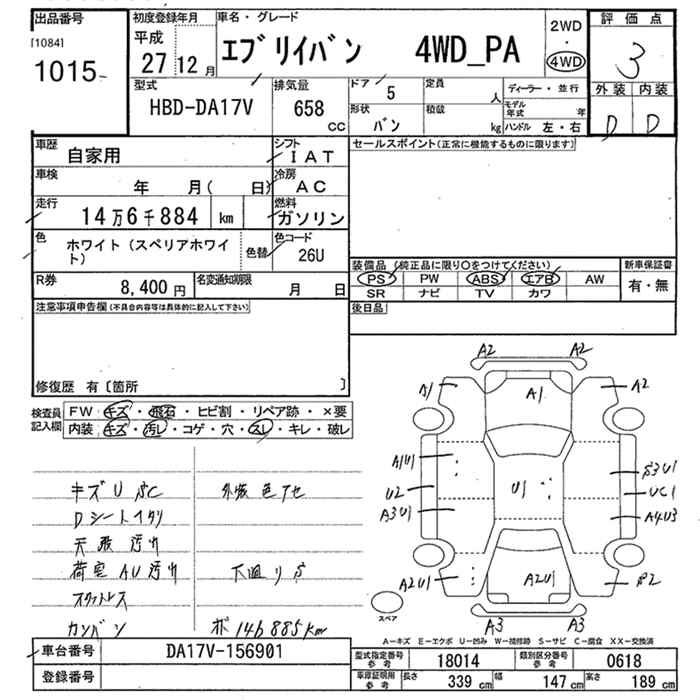 出品番号
[1084]
1015
初度登録年月
平成
27 12 月
車名・グレード
エブリイバン 4WD_PA
2WD
・
4WD
評価点
3
外装 内装
D D
型式
HBD-DA17V
排気量
658
CC
ドア 5
形状
バン
定員
人
積載
kg
ディーラー・並行
モデル年式 年
ハンドル 左・右
車歴
自家用
シフト
IAT
車検
年 月( 日)
冷房
AC
走行
14万6千884 km
燃料
ガソリン
色
ホワイト(スペリアホワイト)
色替
色コード
26U
R券
8,400 円
名変通知期限
月 日
セールスポイント(正常に機能するものに限ります)
装備品 (純正品に限り○をつけてください)
PS PW ABS エアB AW
SR ナビ TV カワ
新車保証書
有・無
後日品
注意事項申告欄(不具合内容等は具体的に記入して下さい)
修復歴 有〔箇所 〕
検査員
記入欄
FW キズ・飛石・ヒビ割・リペア跡・×要
内装 キズ・汚れ・コゲ・穴・スレ・キレ・破レ
キズU SC
外板色アセ
Dシートイタリ
天張汚れ
荷室AU汚れ
下廻りS
スタットレス
カンバン
ポ146885km
A2 A2
A1 A1 A2
A1U1
U2
A3U1
U1
S3U1
UC1
A4U3
A2U1 A2U1 S2
A3 A3
スペア
A-キズ E-エクボ U-凹み W-補修跡 S-サビ C-腐食 XX-交換済
車台番号
DA17V-156901
登録番号
型式指定番号
参考
18014
類別区分番号
参考
0618
車庫証明用
参考
長さ 339 cm 幅 147 cm 高さ 189 cm